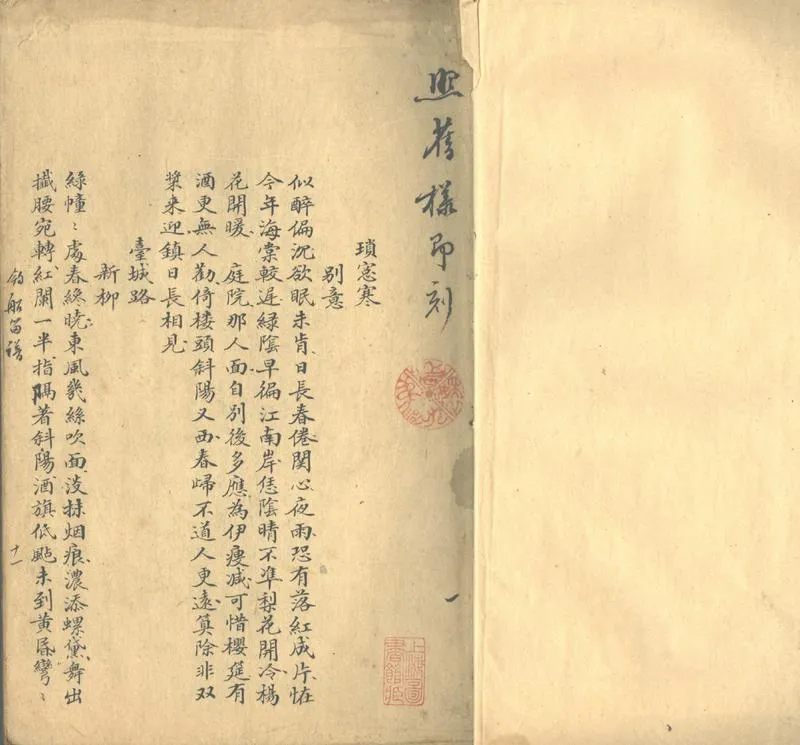 照舊樣印刻
瑣窓寒
别意
似醉偏沉欲眠未肯日長春倦関心夜雨恐有落紅成片恠
今年海棠較遅緑陰早徧江南岸恁陰晴不凖梨花開冷楊
花開暖　庭院那人面自别後多應為伊痩减可惜櫻筵有
酒更無人勸倚楼頭斜陽又西春㱕不道人更遠算除非双
槳来迎鎮日長相見
臺城路
新柳
綠幢〻處春纔曉東風幾絲吹面淺抹烟痕濃添螺黛舞出
纖腰宛轉紅闌一半指隔著斜陽酒旗低颭未到黄昏彎〻
釣船笛譜
十一
上海圖
書館藏